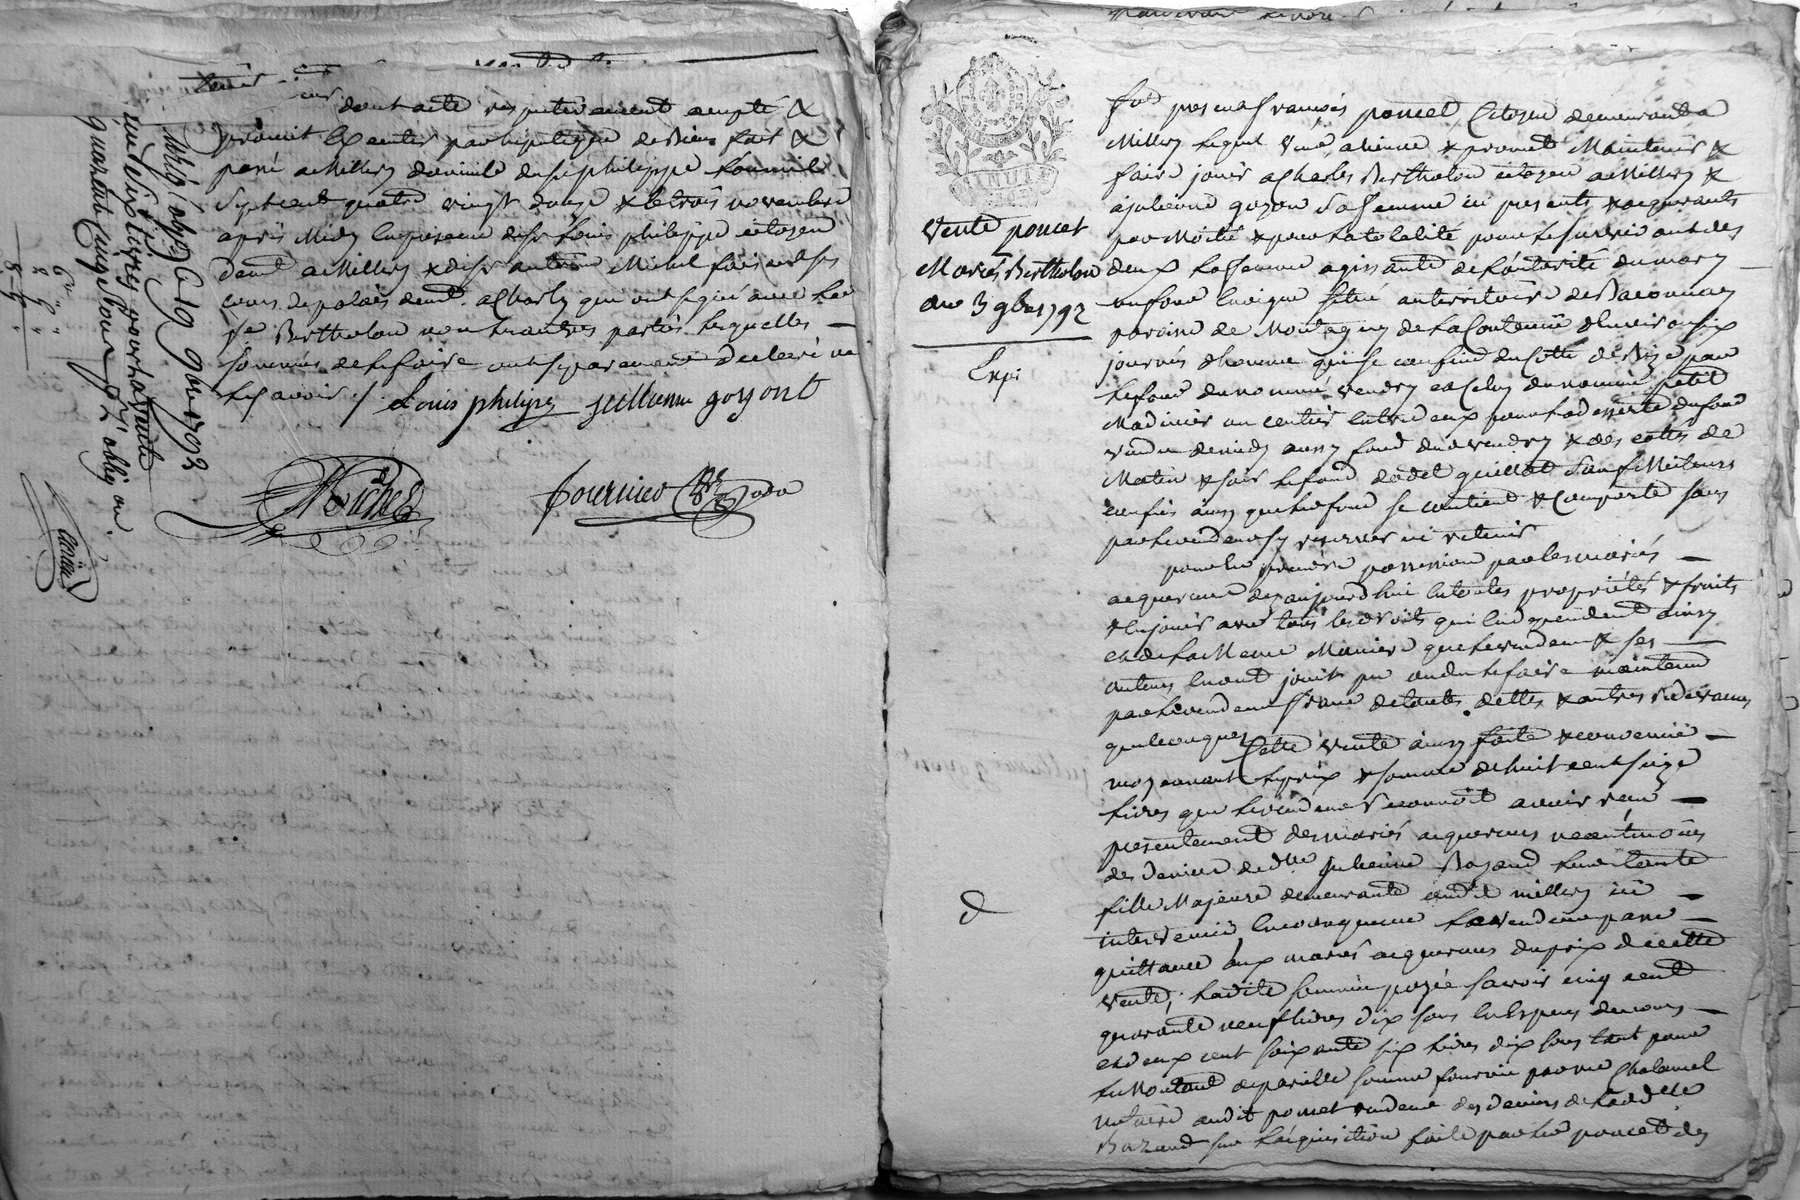 dont acte respectivement accepté &
promit Executer par hipoteque de Biens fait &
passé a Millery domicile du sr philippe L'an mil
Sept cent quatre vingt douze & le trois novembre
apres Midy En presence du sr Louis philippe citoyen
demt a Millery & du sr antoine Michel
cours de palais demt a Charly qui ont signé avec lad
fe Bertholon non les autres parties lesquelles
sommées de le faire ont separement declaré ne
le scavoir /.
Louis philippe jullienne goyont
Michel
fournier
a 19 9bre 1792
une Livre dix Livres pour la vente
quarante cinq sous pr l'oblig on.
MINUTE
Vente poncet
Mariés Bertholon
du 3 9bre 1792
Expé
fut present françois poncet Citoyen demeurant a
Millery lequel Vend, aliene & promet Maintenir &
faire jouir a Charles Bertholon citoyen a Millery &
a julienne goyon Sa femme ici presents & acquerants
par Moitié & pour la totalité pour le survivant des
deux La femme agissante de L'autorité du mary
un fond situé au territoire de
paroisse de Montagny de la Contenue d'Environ six
journés d'homme qui se confine du Cotté de Bize par
le fond du nommé Vendry & Celuy du nommé petit
Madinier un sentier Entre deux pour la desserte du fond
vendu de midy aussy fond dud Vendry & des cottés de
Matin & soir le fond dudt guillot Sauf Meilleurs
confins ainsy que le fond se contient & Comporte sans
par le vendeur s'y reserver ni retenir
pour En prendre possession par les mariés
acquereurs dez aujourd'hui En toutes proprietés & fruits
& En jouir avec tous les droits qui En dependent ainsy
et de la Meme Maniere que le vendeur & ses
auteurs En ont jouit pu ou du le faire maintenu
par le vendeur franc de toutes dettes & autres Redevances
quelconques Cette Vente ainsy faite & convenue
moyennant le prix & somme de huit cent seize
Livres que le vendeur reconnoit avoir reçu
presentement des mariés acquereurs
des deniers de dlle julienne Bazand
fille Majeure demeurante aud Millery ici
intervenue En consequence Le vendeur passe
quittance aux mariés acquereurs du prix de cette
Vente, Ladite somme payée savoir cinq cent
quarante neuf livres dix sous En Espèces de cours
et deux cent soixante six livres dix sous tant pour
Le Montant de pareille somme fournie par me Chalamel
notaire audit poncet vendeur des deniers de Ladlle
Bazand sur L'acquisition faite par le poncet des